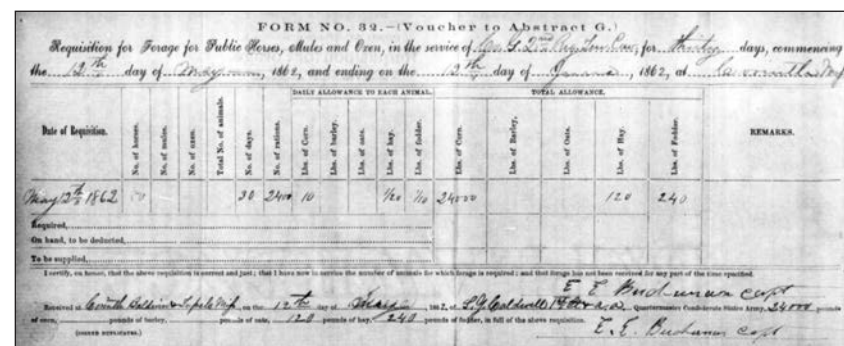 FORM NO. 32.—(Voucher to Abstract G.)
Requisition for Forage for Public Horses, Mules and Oxen, in the service of Co. G. 2nd Regt. for thirty days, commencing
the 12th day of May, 1862, and ending on the 12th day of June, 1862, at
DAILY ALLOWANCE TO EACH ANIMAL. TOTAL ALLOWANCE.
Date of Requisition. No. of horses. No. of mules. No. of oxen. Total No. of animals. No. of days. No. of rations. Lbs. of Corn. Lbs. of barley. Lbs. of oats. Lbs. of hay. Lbs. of fodder. Lbs. of Corn. Lbs. of Barley. Lbs. of Oats. Lbs. of Hay. Lbs. of Fodder. REMARKS.
May 12th 1862 30 2400 10 1/20 1/10 24000 120 240
Required,
On hand, to be deducted,
To be supplied,
I certify, on honor, that the above requisition is correct and just; that I have now in service the number of animals for which forage is required; and that forage has not been received for any part of the time specified.
E. E. Buchanan capt
Received at Corinth Baldwin & Tupelo Mip, on the 12th day of May, 1862, of S. Y. Caldwell Quartermaster Confederate States Army, 24000 pounds
of corn, pounds of barley, pounds of oats, 120 pounds of hay, 240 pounds of fodder, in full of the above requisition.
(SIGNED DUPLICATES.) E. E. Buchanan capt